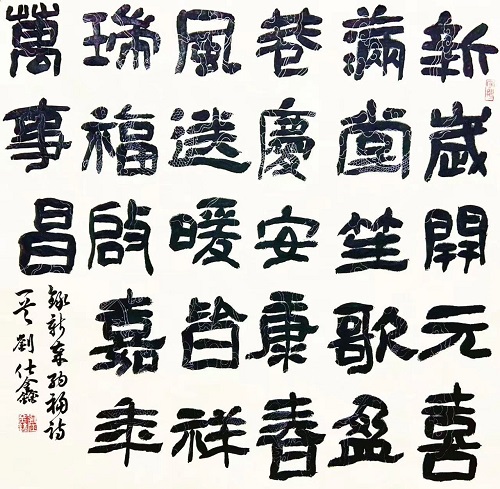 新歲開元喜
滿園笙歌盈
巷慶安康春
風送暖皆祥
瑞福啟嘉年
萬事昌
錄新春納福詩
一首 劉仕鑫